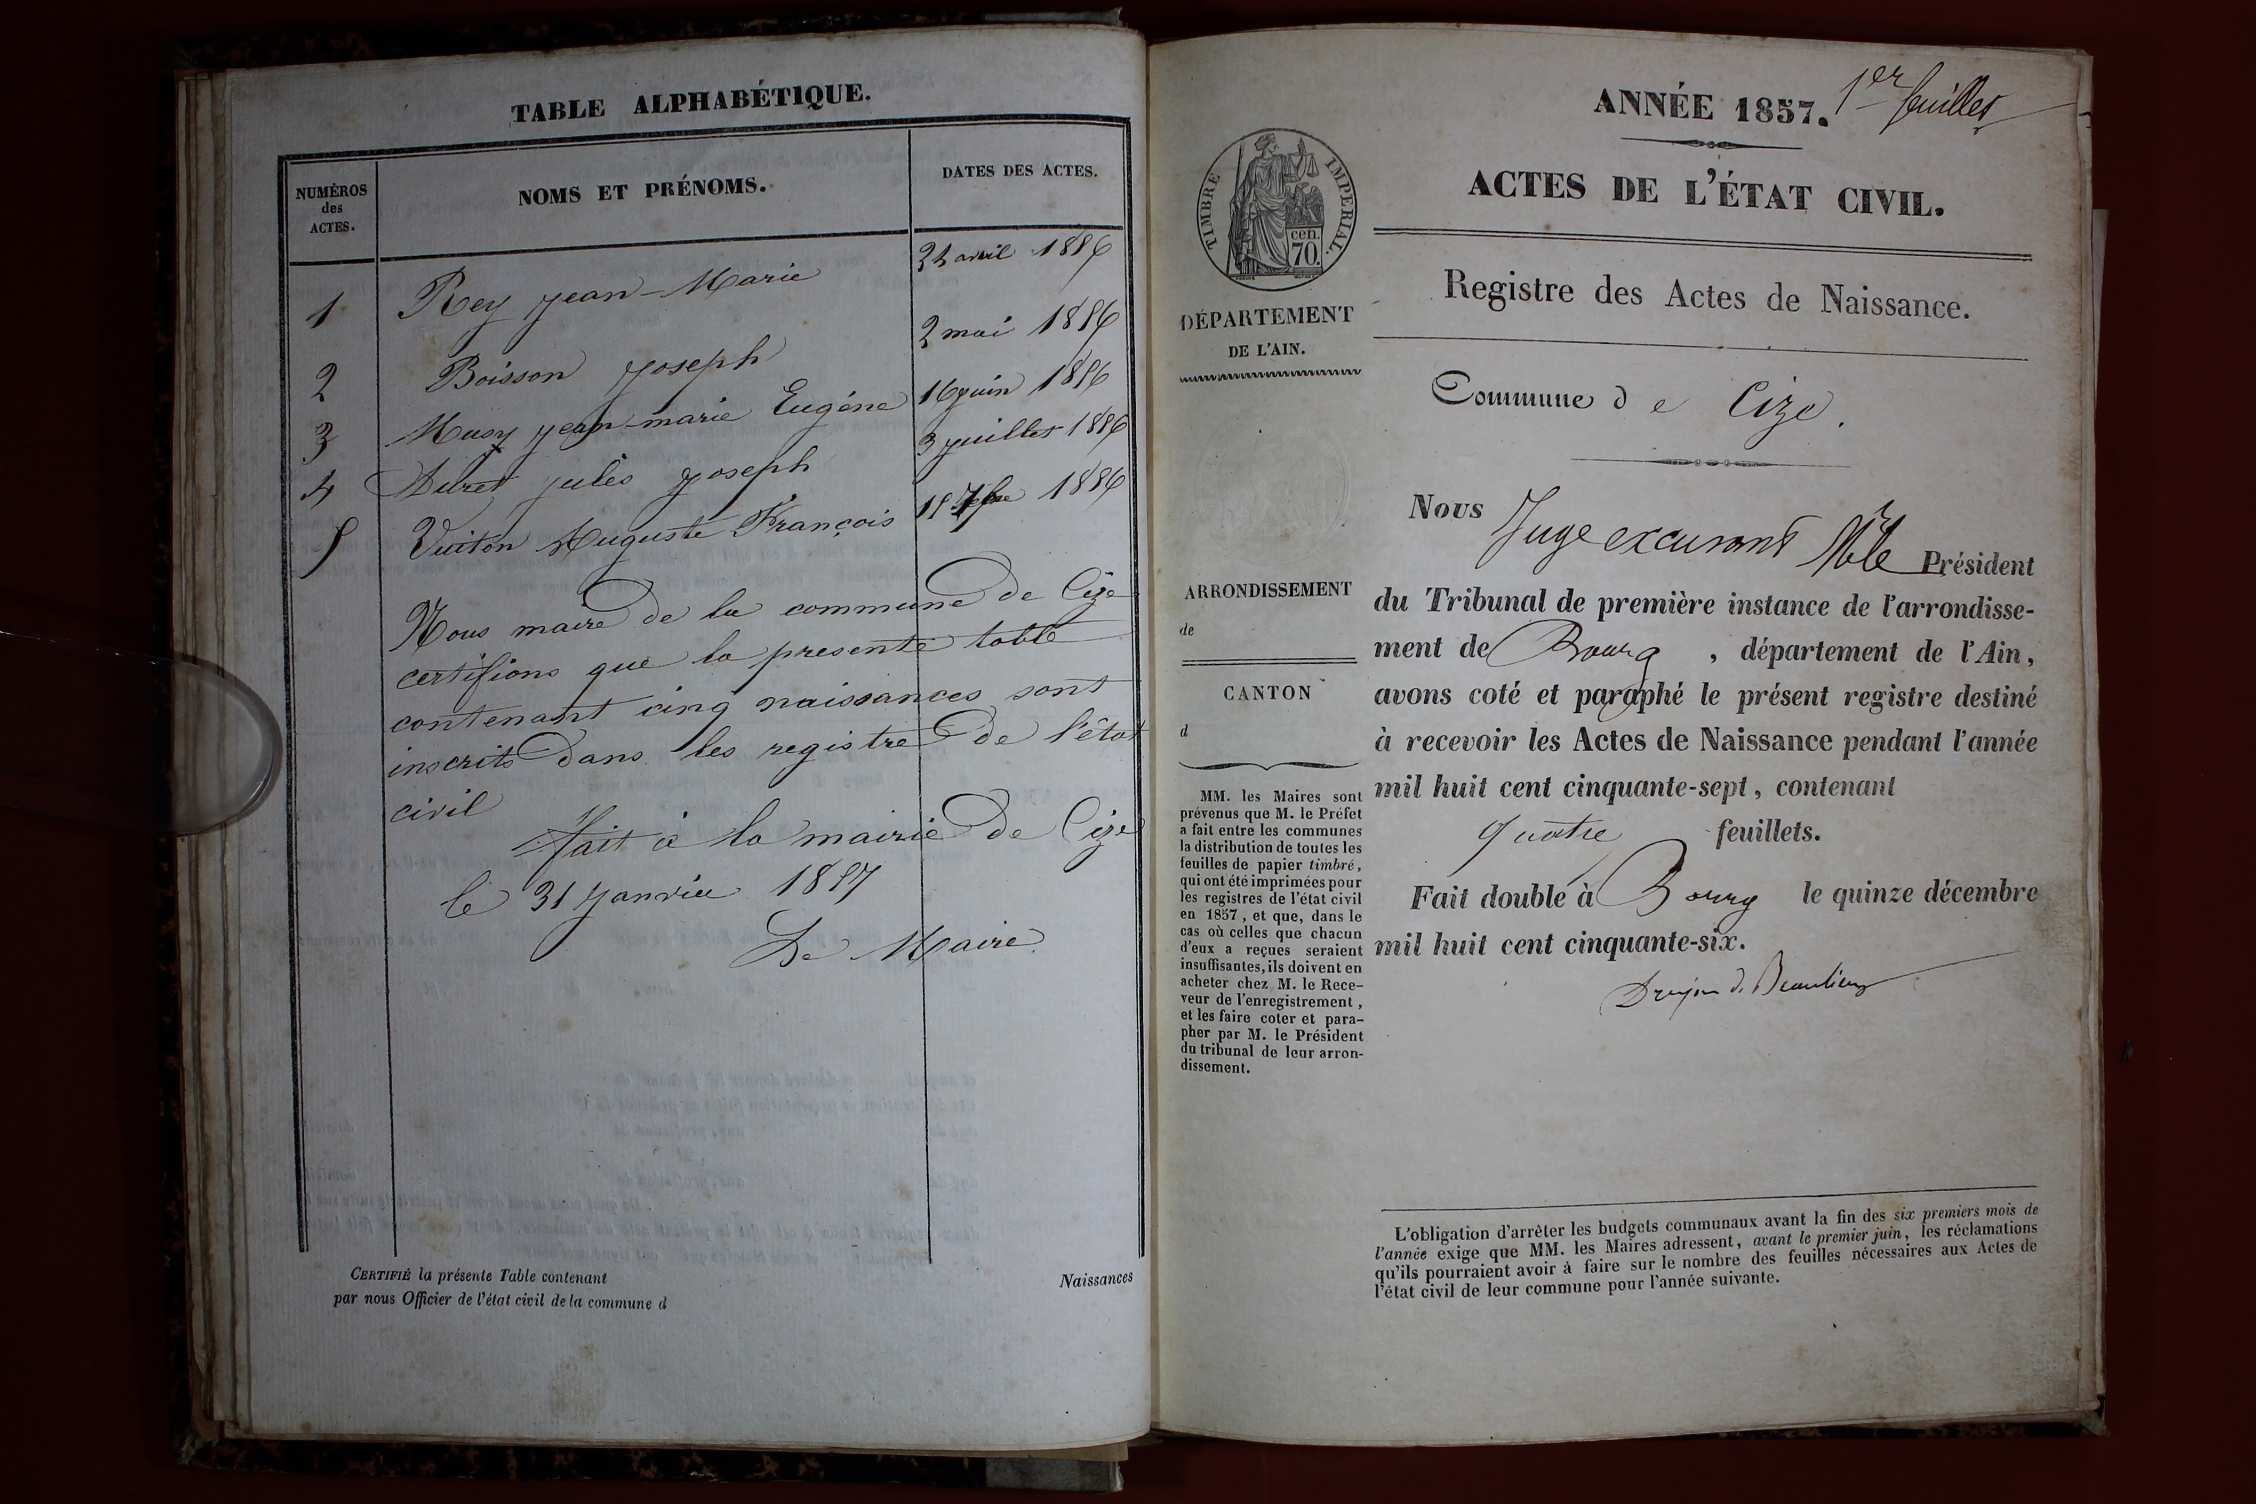 TABLE ALPHABÉTIQUE.
NUMÉROS
des
ACTES.
NOMS ET PRÉNOMS.
DATES DES ACTES.
1 Rey Jean-Marie avril 1856
2 Boisson Joseph 2 mai 1856
3 Musy Jean-marie Eugéne 16 juin 1856
4 Jules Joseph 3 juillet 1856
5 Vuiton Auguste François 1856
Nous maire de la commune de Cize
certifions que la presente table
contenant cinq naissances sont
inscrits dans les registre de l'état
civil
fait à la mairie de Cize
le 31 Janvier 1857
Le Maire
CERTIFIÉ la présente Table contenant Naissances
par nous Officier de l'état civil de la commune d
1er feuillet
ANNÉE 1857.
ACTES DE L'ÉTAT CIVIL.
TIMBRE IMPERIAL.
cen.
70.
DÉPARTEMENT
DE L'AIN.
ARRONDISSEMENT
de
CANTON
d
MM. les Maires sont
prévenus que M. le Préfet
a fait entre les communes
la distribution de toutes les
feuilles de papier timbré,
qui ont été imprimées pour
les registres de l'état civil
en 1857, et que, dans le
cas où celles que chacun
d'eux a reçues seraient
insuffisantes, ils doivent en
acheter chez M. le Rece-
veur de l'enregistrement,
et les faire coter et para-
pher par M. le Président
du tribunal de leur arron-
dissement.
Registre des Actes de Naissance.
Commune de Cize.
Nous Juge Président
du Tribunal de première instance de l'arrondisse-
ment de Bourg, département de l'Ain,
avons coté et paraphé le présent registre destiné
à recevoir les Actes de Naissance pendant l'année
mil huit cent cinquante-sept, contenant
quatre feuillets.
Fait double à Bourg le quinze décembre
mil huit cent cinquante-six.
Drujon d. Beaulieu
L'obligation d'arrêter les budgets communaux avant la fin des six premiers mois de
l'année exige que MM. les Maires adressent, avant le premier juin, les réclamations
qu'ils pourraient avoir à faire sur le nombre des feuilles nécessaires aux Actes de
l'état civil de leur commune pour l'année suivante.